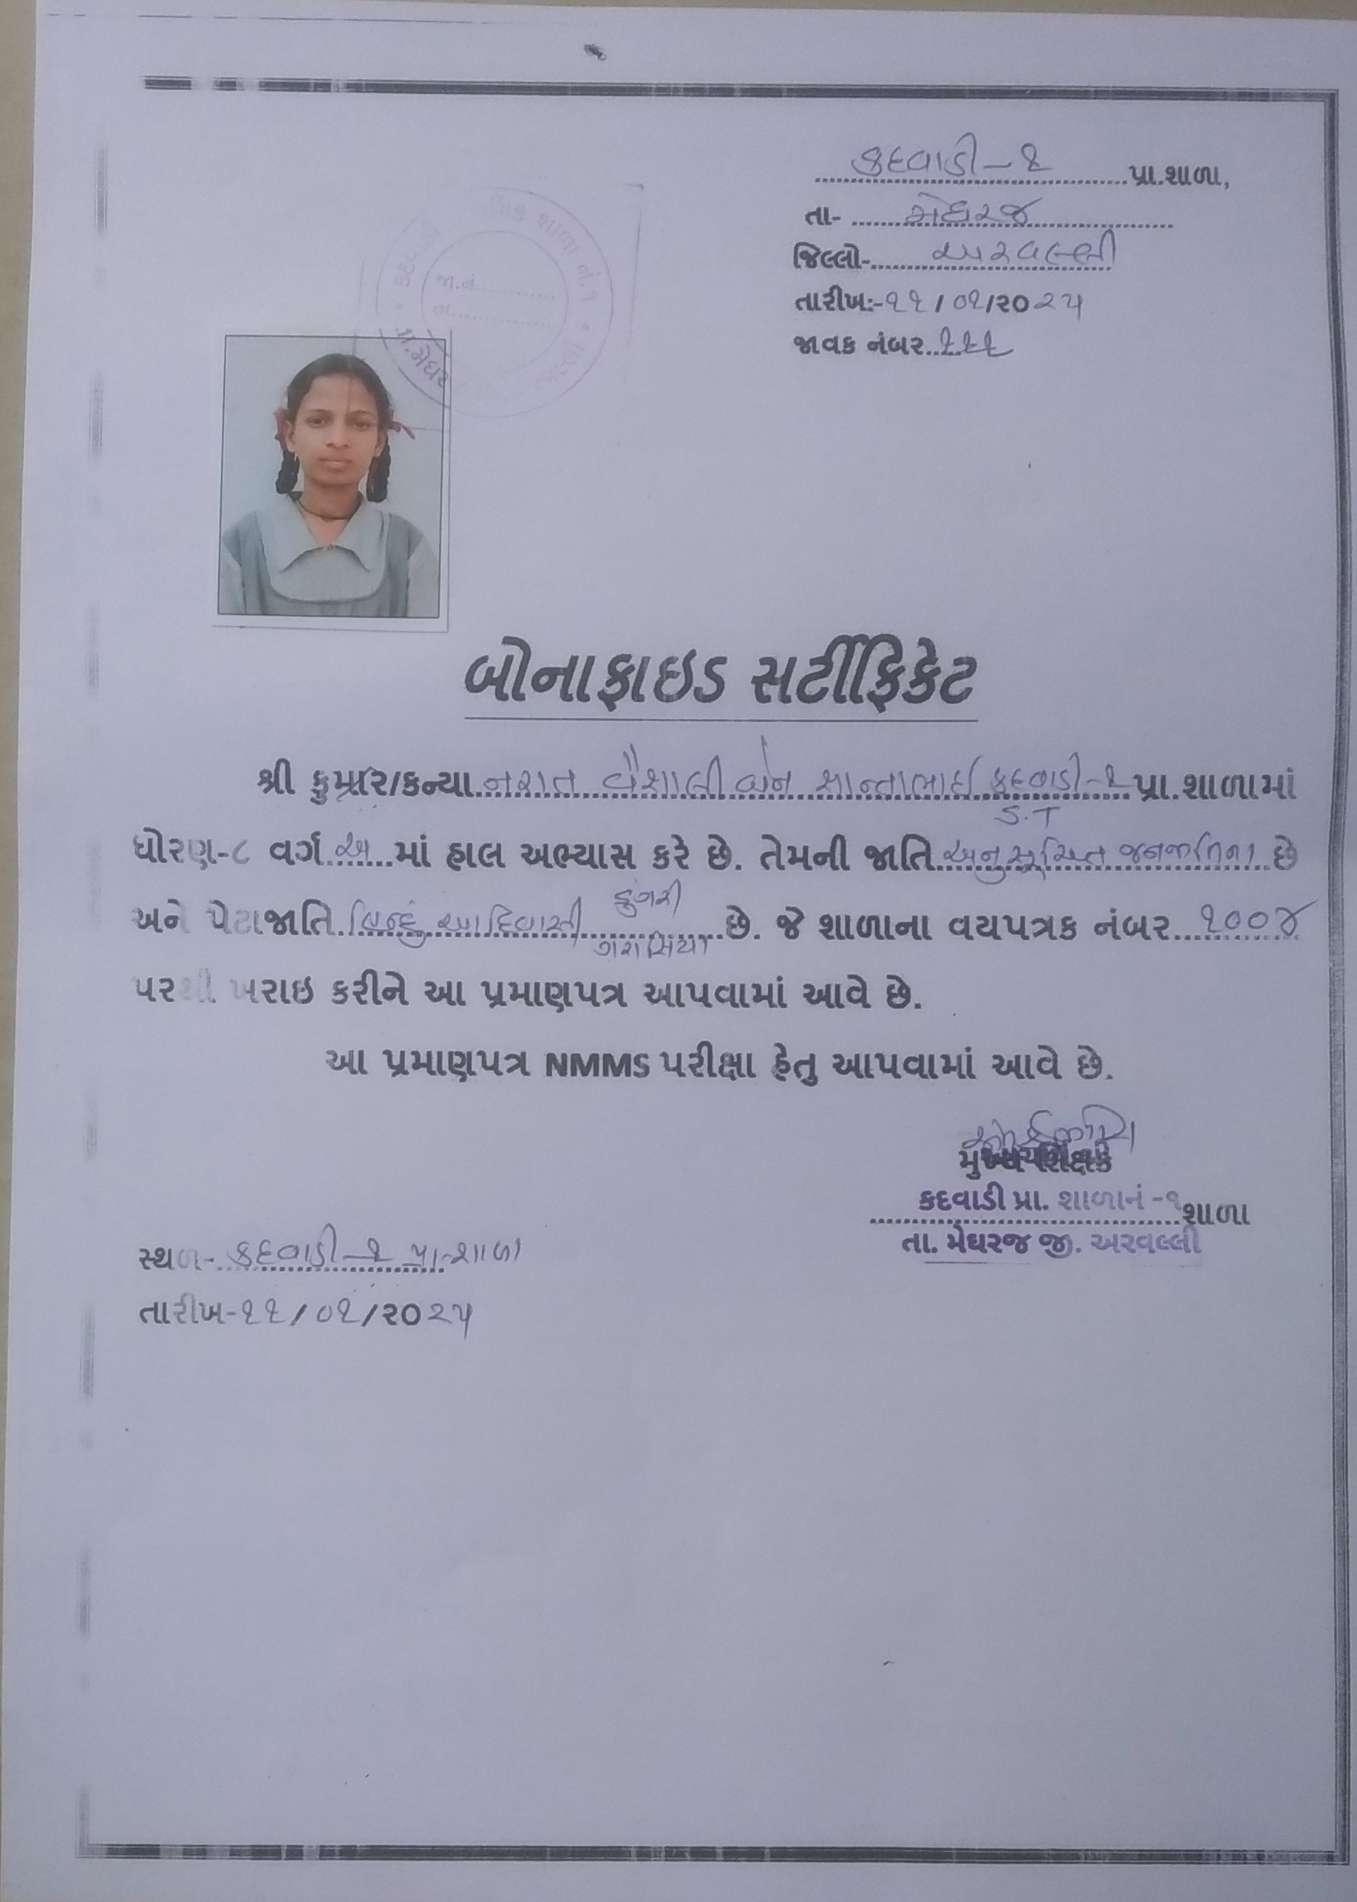 કદવાડી-૧ પ્રા.શાળા,
તા- મેઘરજ
જિલ્લો- અરવલ્લી
તારીખ:-૧૧/૦૧/૨૦૨૫
જાવક નંબર..૧૧૧
શાળા નં.૧
જા.નં.
તા.મેઘર
બોનાફાઇડ સર્ટીફિકેટ
શ્રી કુમાર/કન્યા નરાત વૈશાલીબેન શાન્તાભાઈ કદવાડી-૧ પ્રા.શાળામાં
S.T
ધોરણ-૮ વર્ગ અ માં હાલ અભ્યાસ કરે છે. તેમની જાતિ અનુસૂચિત જનજાતિના છે
અને પેટાજાતિ હિન્દુ આદિવાસી ડુંગરી ગરાસિયા છે. જે શાળાના વયપત્રક નંબર ૧૦૦૪
પરથી ખરાઇ કરીને આ પ્રમાણપત્ર આપવામાં આવે છે.
આ પ્રમાણપત્ર NMMS પરીક્ષા હેતુ આપવામાં આવે છે.
કદવાડી પ્રા. શાળાનં -૧ શાળા
તા. મેઘરજ જી. અરવલ્લી
સ્થળ- કદવાડી-૧ પ્રા-શાળા
તારીખ-૧૧/૦૧/૨૦૨૫